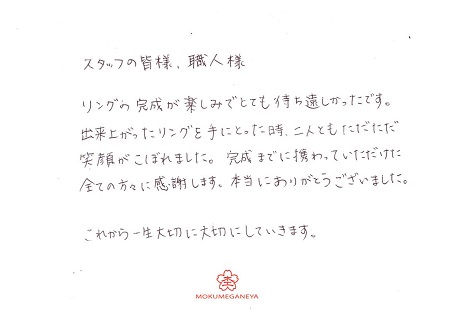 スタッフの皆様、職人様
リングの完成が楽しみでとても待ち遠しかったです。
出来上がったリングを手にとった時、二人ともただただ
笑顔がこぼれました。完成までに携わっていただけた
全ての方々に感謝します。本当にありがとうございました。
これから一生大切に大切にしていきます。
MOKUMEGANEYA